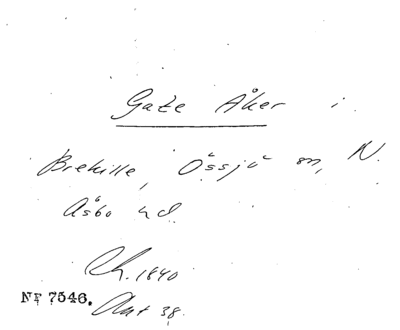 Gate Åker i
Brekille, Össjö sn, N.
Åsbo hd.
Ch. 1840
NF 7546. Akt 38.